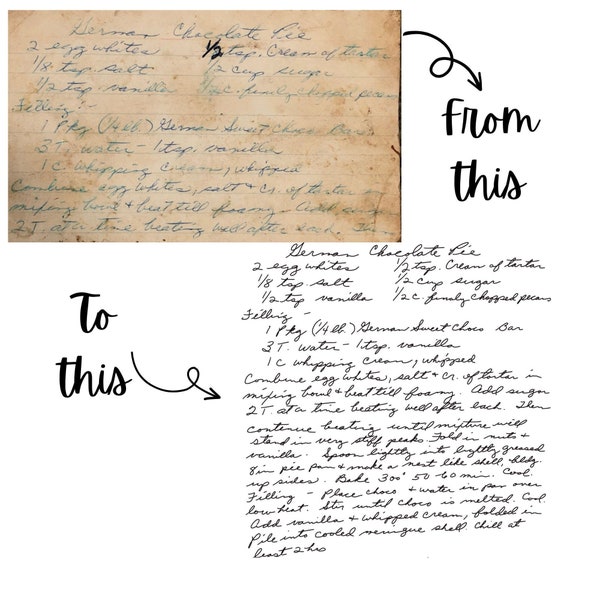 German Chocolate Pie
2 egg whites 1/2 tsp. Cream of tartar
1/8 tsp. salt 1/2 cup sugar
1/2 tsp. vanilla 1/2 C. finely chopped pecans
Filling :-
1 Pkg (1/4 lb.) German Sweet Choco Bar
3 T. water - 1 tsp. vanilla
1 C. whipping cream, whipped
Combine egg whites, salt + cr. of tartar in
mixing bowl + beat till foamy. Add sugar
2 T. at a time beating well after each. Then
From
this
To
this
German Chocolate Pie
2 egg whites 1/2 tsp. Cream of tartar
1/8 tsp. salt 1/2 cup sugar
1/2 tsp vanilla 1/2 C. finaly chopped pecans
Filling -
1 Pkg (1/4 lb.) German Sweet Choco Bar
3 T. water - 1 tsp. vanilla
1 C whipping cream, whipped
Combine egg whites, salt + cr. of tartar in
mixing bowl + beat till foamy. Add sugar
2 T. at a time beating well after each. Then
continue beating until mixture will
stand in very stiff peaks. Fold in nuts +
vanilla. Spoon lightly into lightly greased
8 in pie pan + make a nest like shell, bldg.
up sides. Bake 300° 50-60 min. Cool.
Filling - Place choco + water in pan over
low heat. Stir until choco is melted. Cool
Add vanilla + whipped cream, folded in
Pile into cooled meringue shell. Chill at
least 2 hrs